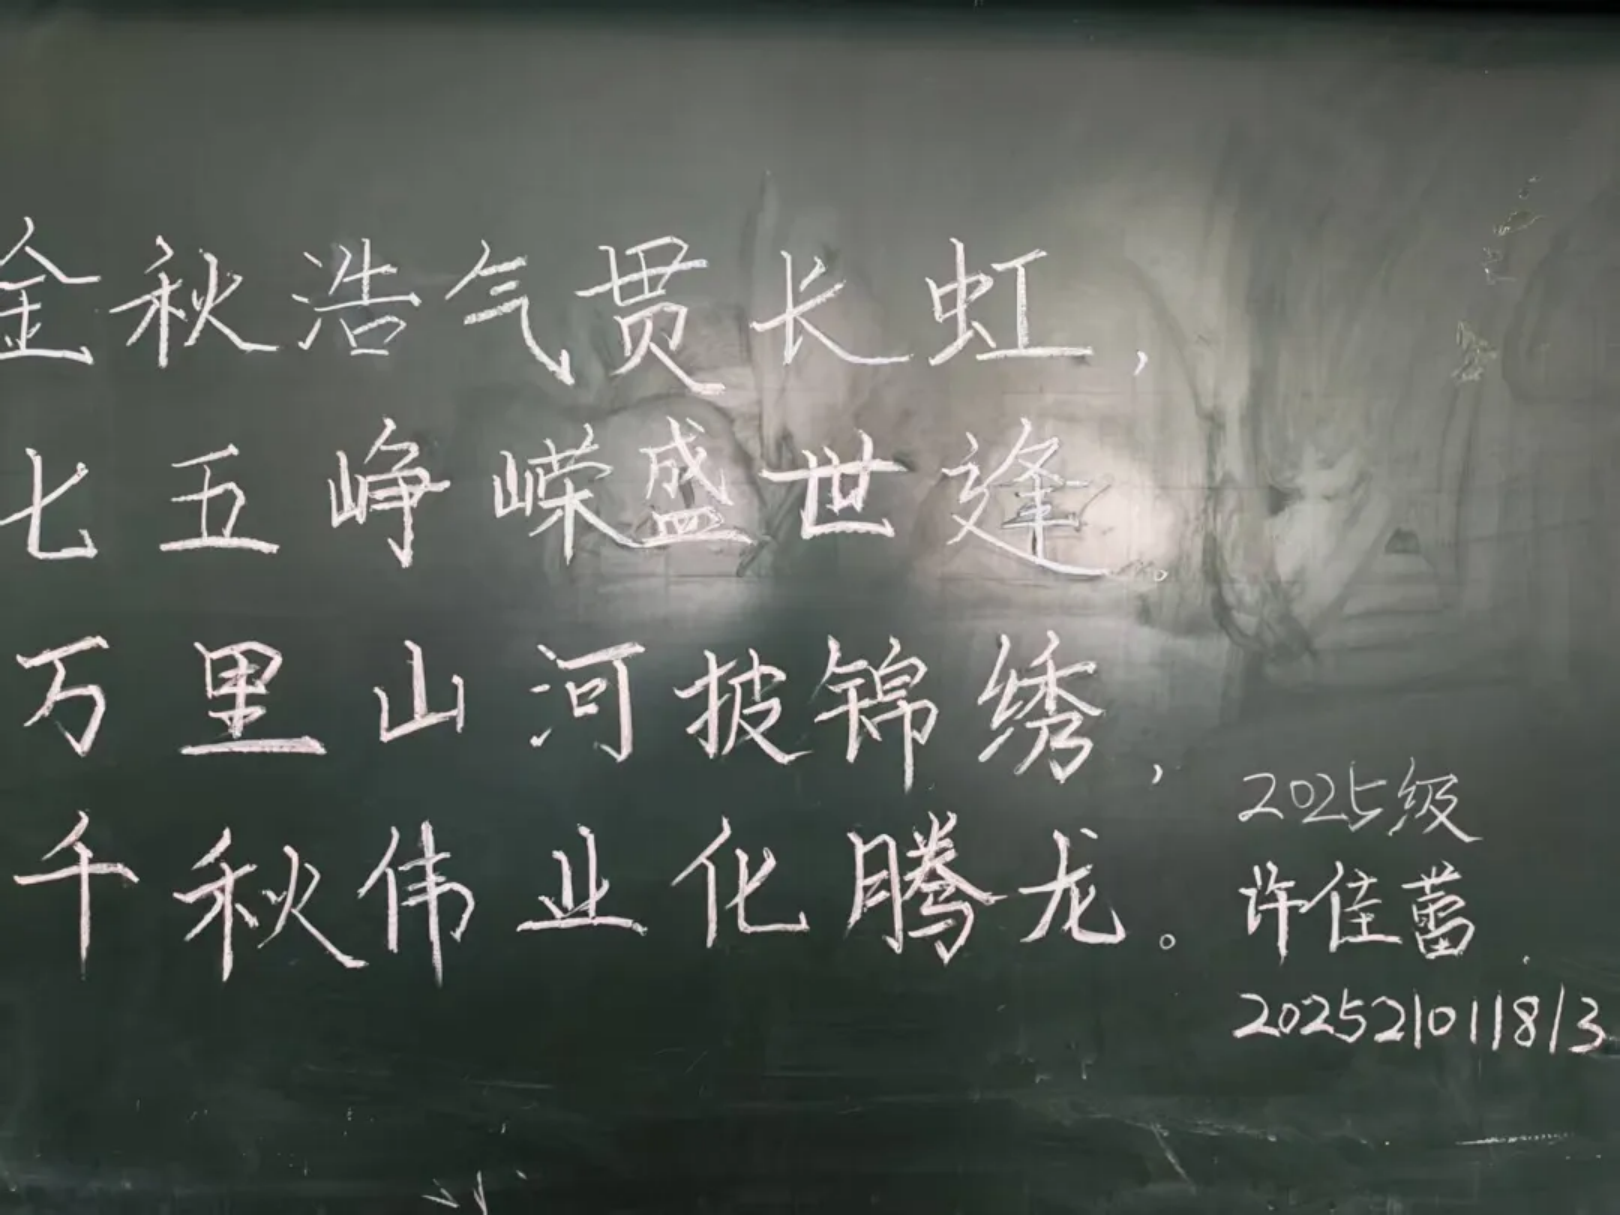 金秋浩气贯长虹,
七五峥嵘盛世逢。
万里山河披锦绣,
千秋伟业化腾龙。
2025级
许佳蕾.
202521011813